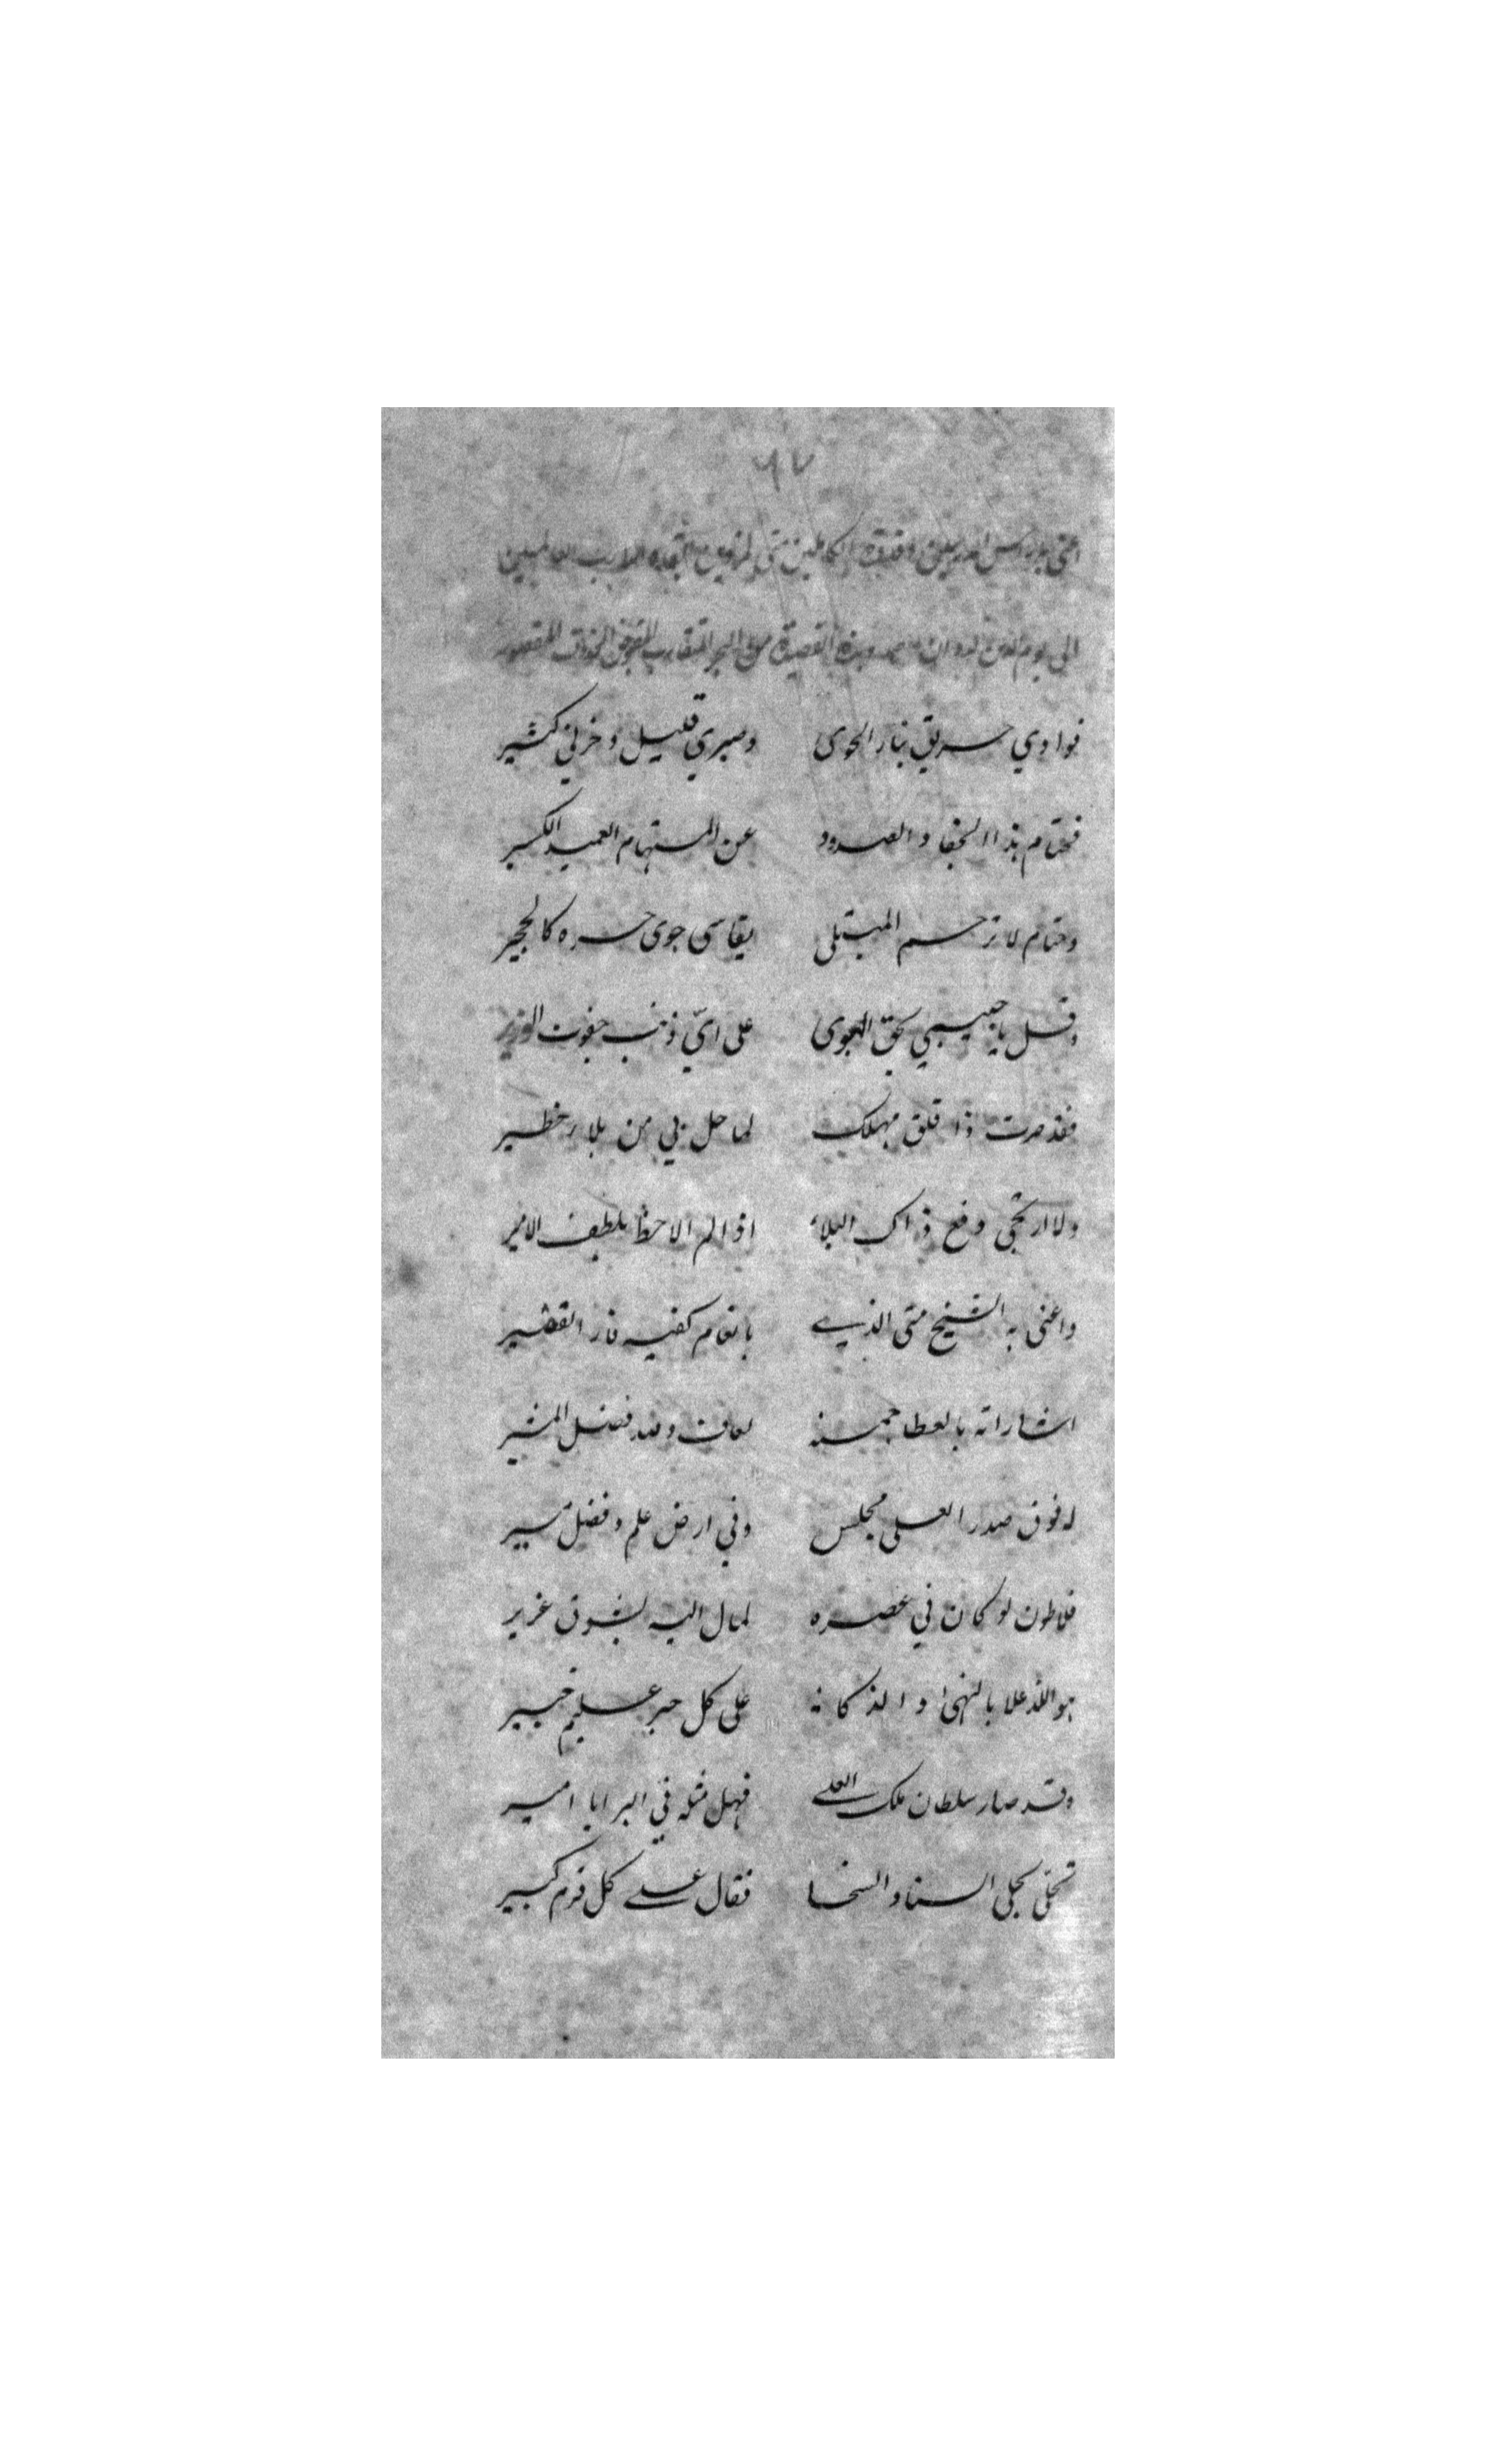 ٩٧
اعني به رئيس المدرسين وقدوة الكاملين متى
الى يوم الدين وهذه القصيدة من البحر المتقارب المقبوض المحذوف المقصور
فوادي حريق بنار الجوى وصبري قليل وحزني كثير
فحتام هذا الجفا والصدود عن المستهام العميد الكسير
وحتام لا ترحم المبتلى يقاسى جوى حره كالهجير
وقل يا حبيبي بحق الهوى على ايّ ذنب جفوت الوزير
فقد صرت ذا قلق مهلك لما حل بي من بلاء خطير
ولا ارتجى دفع ذاك البلاء اذا لم الاحظ بلطف الامير
واعني به الشيخ متى الذي بانعام كفيه فاز الفقير
اشاراته بالعطا جمة ولله فضل المشير
له فوق صدر العلى مجلس وفي ارض علم وفضل يسير
فلاطون لو كان في عصره لمال اليه بشوق غزير
هو اللذ علا بالنهى والذكا على كل حبر عليم خبير
وقد صار سلطان ملك العلى فهل مثله في البرايا امير
تحلى بحلى السنا والسخا فقال على كل قرم كبير